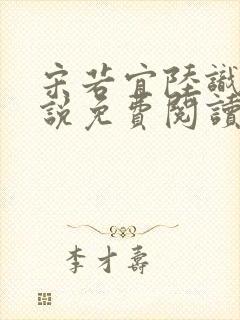 宋若宜陸識
說免費閱讀
李才壽